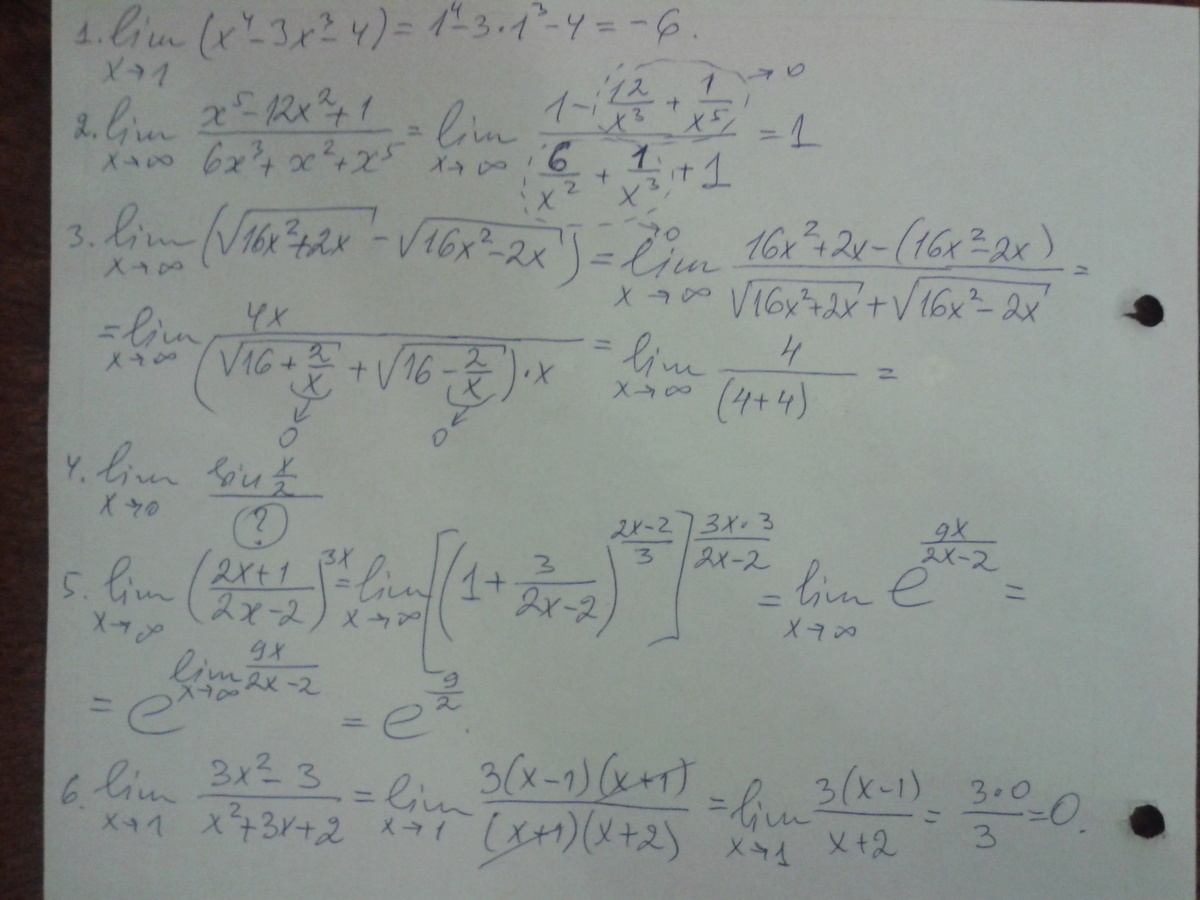 1. lim x→1 (x⁴-3x³-4) = 1⁴-3·1³-4 = -6.
2. lim x→∞ (x⁵-12x²+1)/(6x³+x²+x⁵) = lim x→∞ (1-12/x³+1/x⁵)/(6/x²+1/x³+1) = 1 →0 →0
3. lim x→∞ (√(16x²+2x) - √(16x²-2x)) = lim x→∞ (16x²+2x-(16x²-2x))/(√(16x²+2x)+√(16x²-2x)) =
= lim x→∞ 4x/((√(16+2/x)+√(16-2/x))·x) = lim x→∞ 4/(4+4) =
0 0
4. lim x→0 (sin x/2)/?
5. lim x→∞ ((2x+1)/(2x-2))^(3x) = lim x→∞ [(1+3/(2x-2))^((2x-2)/3)]^((3x·3)/(2x-2)) = lim x→∞ e^(9x/(2x-2)) =
= e^(lim x→∞ 9x/(2x-2)) = e^(9/2).
6. lim x→1 (3x²-3)/(x²+3x+2) = lim x→1 (3(x-1)(x+1))/((x+1)(x+2)) = lim x→1 (3(x-1))/(x+2) = (3·0)/3 = 0.